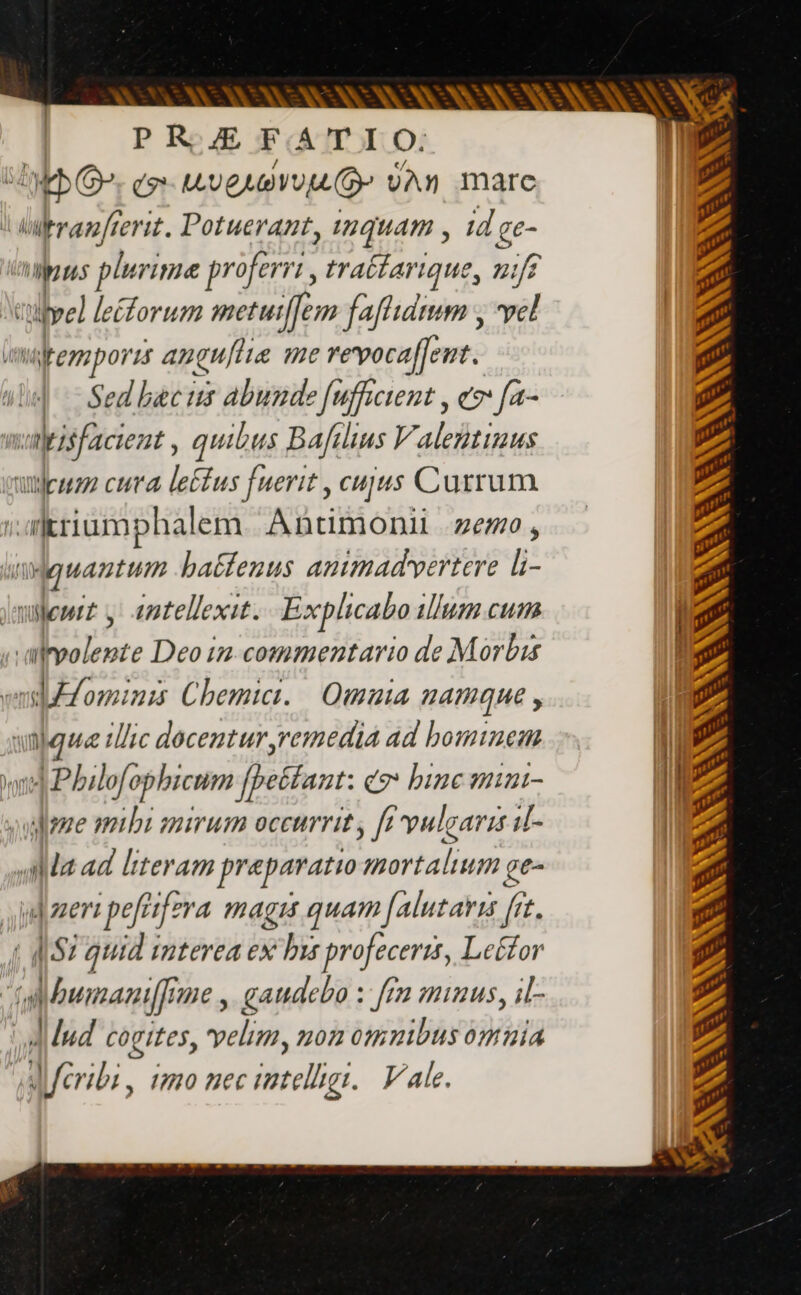 PRÆFATIO.
& μυριώνυμ(Ο- ὕλη mare
tranſierit. Potuerant, inquam, id ge-
nus plurima proferri, tractarique, niſi
vel lectorum metuiſſem faſtidium, vel
temporis anguſtiæ me revocaſſent.
Sed hæc iis abunde ſufficient, & ſa-
tisfacient, quibus Baſilius Valentinus
cum cura lectus fuerit, cujus Currum
triumphalem Antimonii nemo,
quantum hactenus animadvertere li-
cuit, intellexit. Explicabo illum cum
volente Deo in commentario de Morbis
Hominis Chemici. Omnia namque,
quæ illic docentur, remedia ad hominem
Philoſophicum ſpectant: & hinc mini-
me mihi mirum occurrit, ſi vulgaris il-
la ad literam præparatio mortalium ge-
neri peſtifera magis quam ſalutaris ſit.
Si quid interea ex his profeceris, Lector
humaniſſime, gaudebo: ſin minus, il-
lud cogites, velim, non omnibus omnia
ſcribi, imo nec intelligi. Vale.